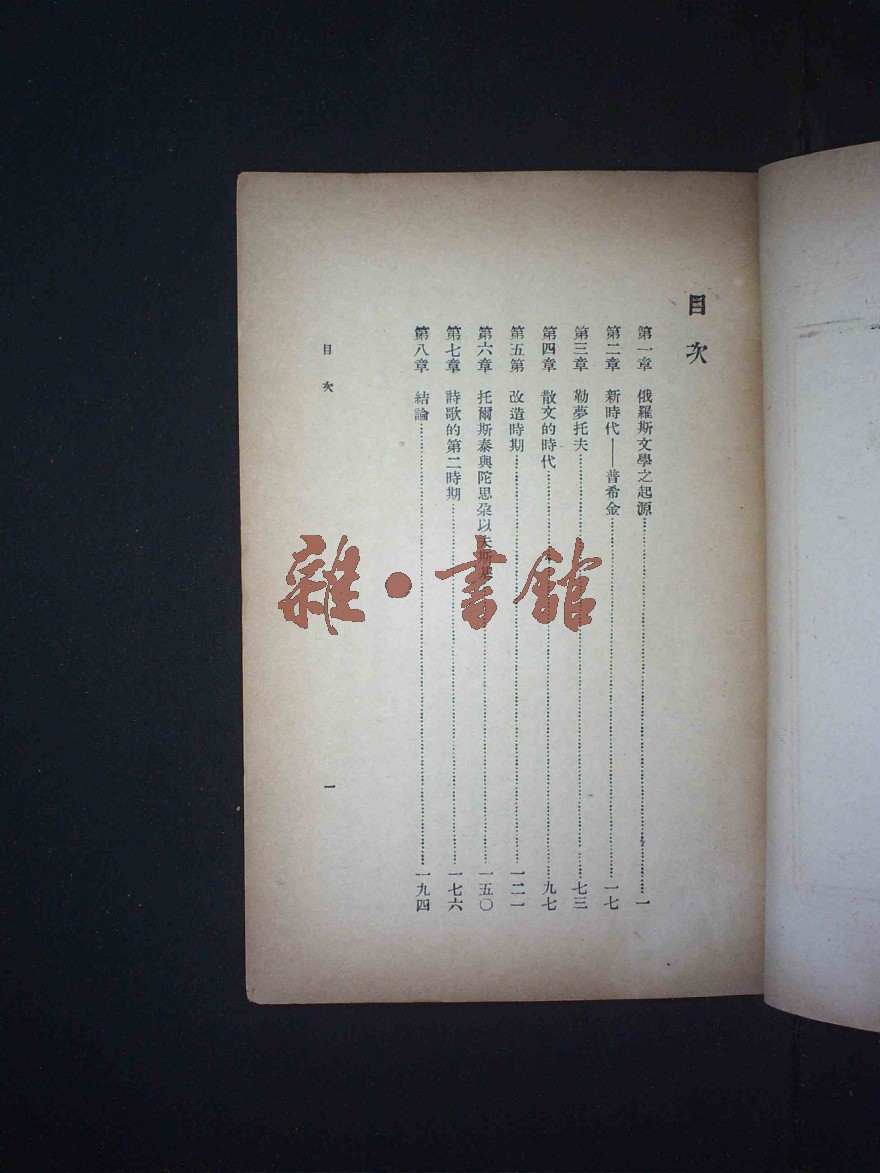 目次
第一章 俄羅斯文學之起源……………………一
第二章 新時代——普希金……………………一七
第三章 勒夢托夫……………………七三
第四章 散文的時代……………………九七
第五第 改造時期……………………一二一
第六章 托爾斯泰與陀思朶以夫斯基……………………一五〇
第七章 詩歌的第二時期……………………一七六
第八章 結論……………………一九四
目次
一
雜·書館